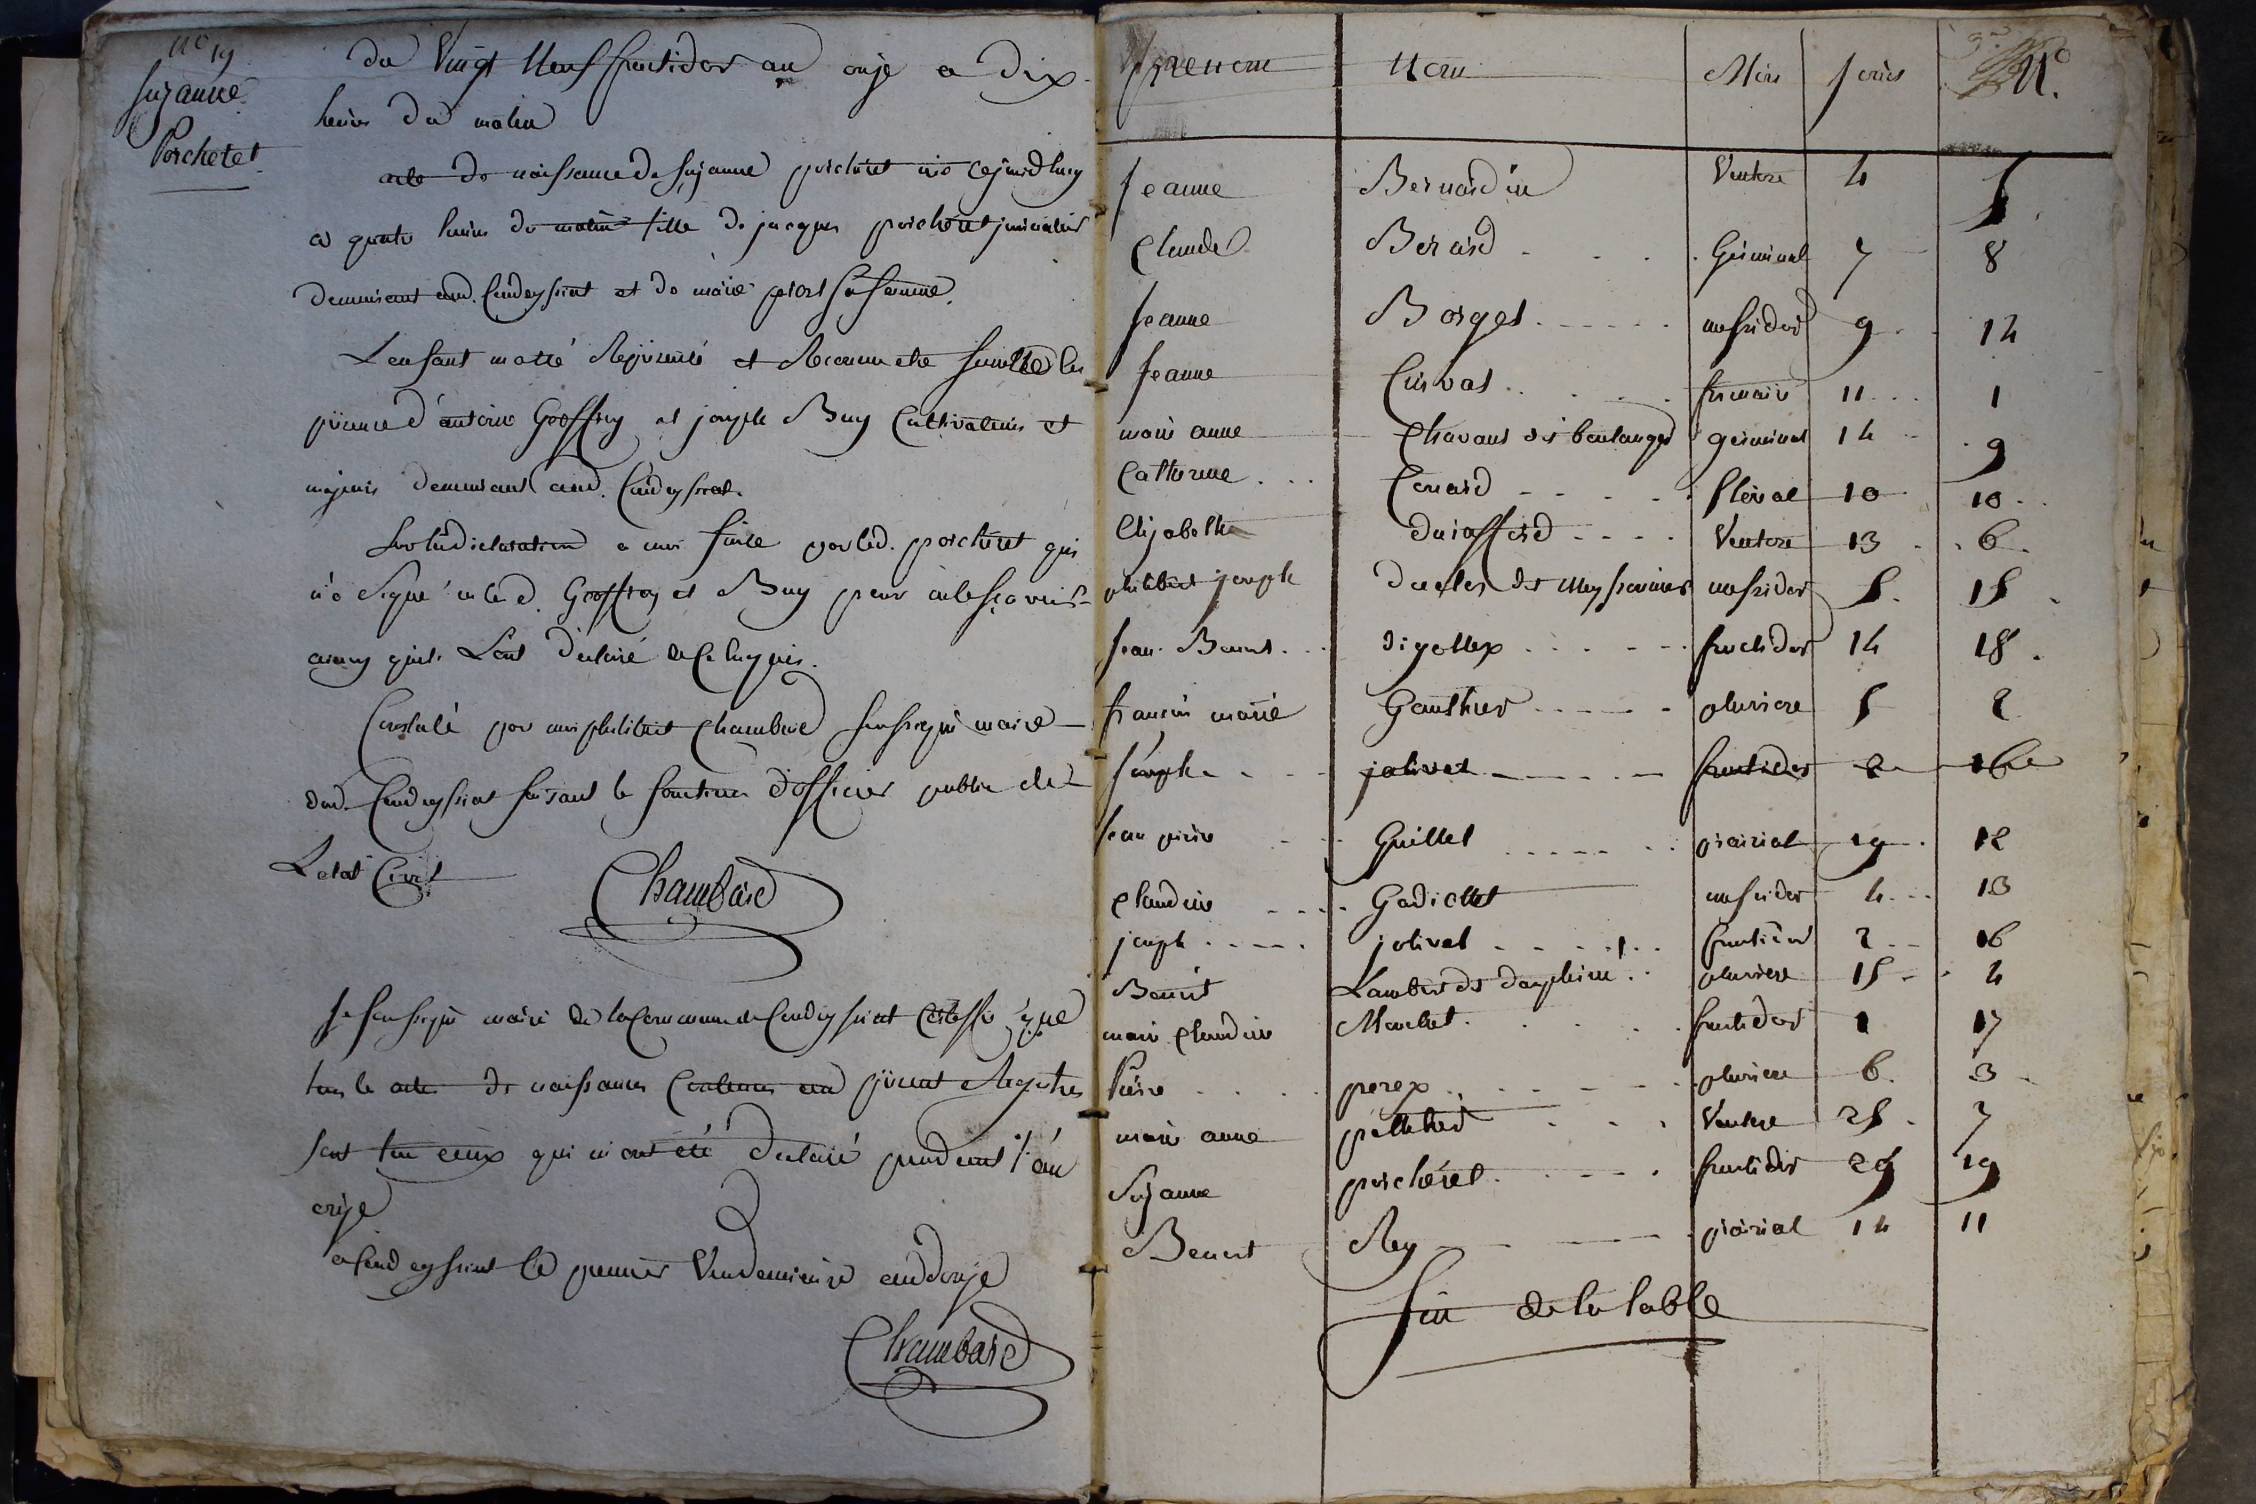 n° 19
Suzanne
Porcheret
du Vingt neuf fructidor an onze a dix
heures du matin
acte de naissance de Suzanne porcheret née cejourdhuy
a quatre heures du matin fille de jacques porcheret journalier
demeurant aud. Condeyssiat et de marie pitort sa femme.
L'enfant matté Représenté et Reconnu etre femelle en
présence d'antoine Geoffray et joseph Buy Cultivateurs et
majeurs demeurant aud. Condeyssiat.
Sur la declaration a moi faite par led. porcheret qui
n'a signé ni led. Geoffray et Buy pour ne le sçavoir
ainsy quils L'ont déclaré de Ce enquis.
Constaté par moi philibert Chambard soussigné maire
dud. Condeyssiat faisant les fonctions d'officier public de
L'etat Civil
Chambard
Je soussigné maire de la Commune de Condeyssiat Certiffie que
tous les actes de naissances Contenus au présent Registre
sont tous ceux qui m'ont été declaré pendant l'an
onze
a Condeyssiat le premier Vendemiaire an douze
Chambard
prenom nom Mois jours N°
Jeanne Bernardin Ventose 4 5
Claude Berard Germinal 7 8
Jeanne Borget messidor 9 14
Jeanne Curvat frimaire 11 1
marie anne Chavant dit boulanger germinal 14 9
Catherine Conard floreal 10 10
Elizabeth durafford Ventose 13 6
philibert joseph duclos des meyssonnier messidor 5 15
Jean Benoit digollex fructidor 14 18
francois marie Gauthier pluviose 5 2
Joseph jolivet fructidor 2 16
Jean pierre Guillet prairial 19 12
Claudine Gadiollet messidor 4 13
joseph jolivet fructidor 2 16
Benoit Lambert dit dauphiné pluviose 15 4
marie Claudine Monchet fructidor 1 17
Piere perex pluviose 6 3
marie anne pelletier Ventose 25 7
Suzanne porcheret fructidor 29 19
Benoit Rey prairial 14 11
fin de la table